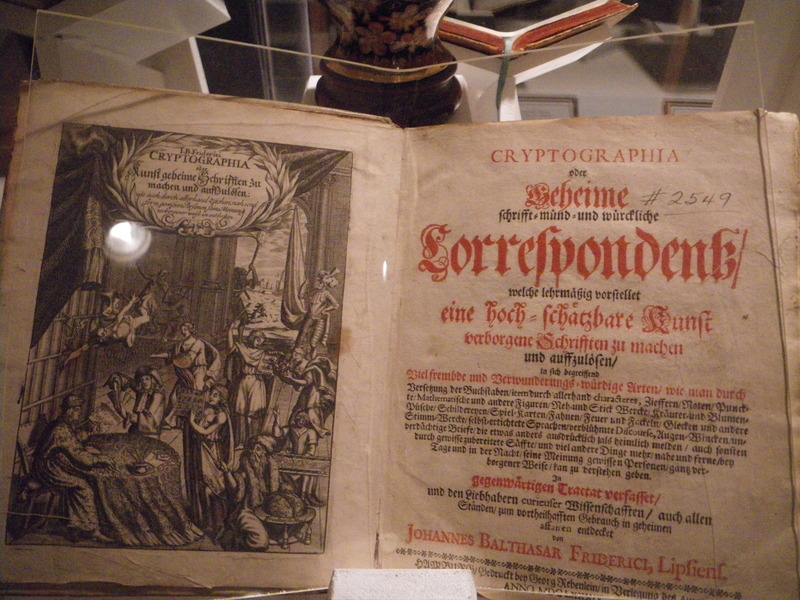 I.B. Friderici
CRYPTOGRAPHIA
oder
Kunst geheime Schrifften zu
machen und auffzulösen
CRYPTOGRAPHIA
oder
Geheime
#2549
schrifft-münd-und würckliche
Correspondentz/
welche lehrmäßig vorstellet
eine hoch-schätzbare Kunst
verborgene Schrifften zu machen
und auffzulösen/
in sich begreiffend
Viel frembde und Verwunderungs-würdige Arten/ wie man durch
Versetzung der Buchstaben/ item durch allerhand characteres, Zieffern/ Noten/ Punck-
te/ Mathematische und andere Figuren/ Neh-und Stick Wercke/ Kräuter-und Blumen-
Püsche/ Schildereyen/ Spiel-Karten/ Fahnen/ Feuer und Fackeln/ Glocken und andere
Stimm-Wercke/ selbst-ertichtete Sprachen/ verblühmte Discourse, Augen-Wincken/ un-
verdächtige Brieffe die etwas anders ausdrücklich als heimlich melden/ auch sonsten
durch gewisse zubereitete Säffte/ und viel andere Dinge mehr/ nahe und ferne/ bey
Tage und in der Nacht/ seine Meinung gewissen Personen/ gantz ver-
borgener Weise/ kan zu verstehen geben.
In
gegenwärtigen Tractat verfasset/
und den Liebhabern curieuser Wissenschafften/ auch allen
Ständen/ zum vortheilhafften Gebrauch in geheimen
entdecket
von
JOHANNES BALTHASAR FRIDERICI, Lipsiens.
HAMBURG/ Gedruckt bey Georg Rebenlein/ in Verlegung des
ANNO